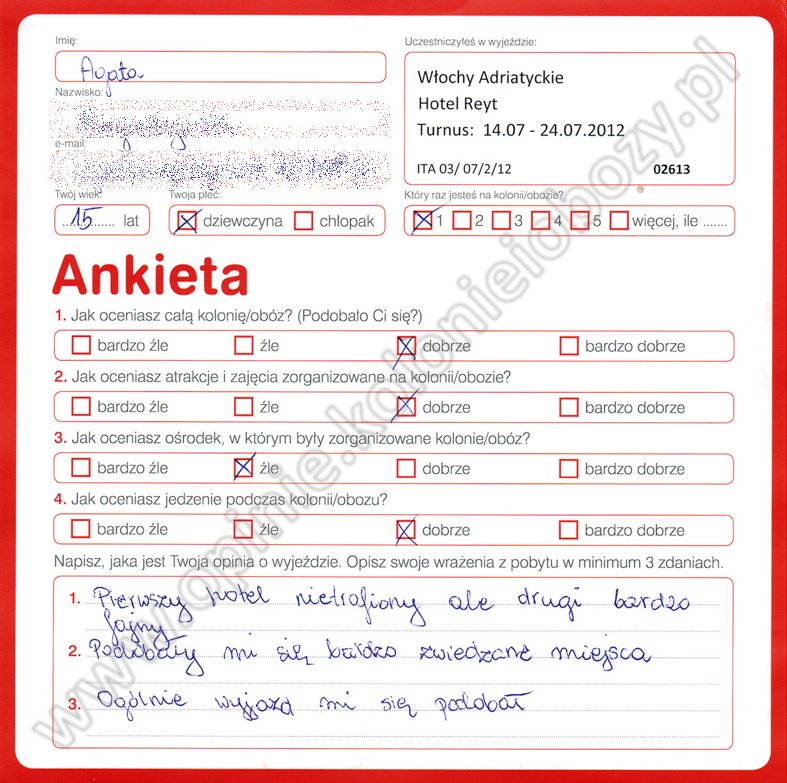 Imię:
Agata
Nazwisko:
e-mail:
Twój wiek:
Twoja płeć:
15 lat
dziewczyna chłopak
Uczestniczyłeś w wyjeździe:
Włochy Adriatyckie
Hotel Reyt
Turnus: 14.07 - 24.07.2012
ITA 03/ 07/2/12 02613
Który raz jesteś na kolonii/obozie?
1 2 3 4 5 więcej, ile .......
Ankieta
1. Jak oceniasz całą kolonię/obóz? (Podobało Ci się?)
bardzo źle źle dobrze bardzo dobrze
2. Jak oceniasz atrakcje i zajęcia zorganizowane na kolonii/obozie?
bardzo źle źle dobrze bardzo dobrze
3. Jak oceniasz ośrodek, w którym były zorganizowane kolonie/obóz?
bardzo źle źle dobrze bardzo dobrze
4. Jak oceniasz jedzenie podczas kolonii/obozu?
bardzo źle źle dobrze bardzo dobrze
Napisz, jaka jest Twoja opinia o wyjeździe. Opisz swoje wrażenia z pobytu w minimum 3 zdaniach.
1. Pierwszy hotel nietrafiony ale drugi bardzo
fajny
2. Podobały mi się bardzo zwiedzane miejsca
3. Ogólnie wyjazd mi się podobał
www.opinie.kolonieiobozy.pl